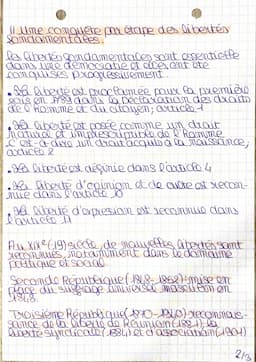 1) Une conquête par étape des libertés
fondamentales.
les libertés fondamentales sont essentielles
dans une démocratie et elles ont été
conquises progressivement.
• La liberté est proclamée pour la première
fois en 1789 dans la déclaration des droits
de l'Homme et du citoyen, article 1
• La liberté est posée comme un droit
naturel et imprescriptible de l'Homme
c'est-à-dire un droit acquis à la naissance,
article 2
• La liberté est définie dans l'article 4
• La liberté d'opinion et de culte est recon-
nue dans l'article 10
• La liberté d'expression est reconnue dans
l'article 11
Au XIXe (19) siècle, de nouvelles libertés sont
reconnues, notamment dans le domaine
politique et social.
Seconde République (1848-1852): mise en
place du suffrage universel masculin en
1848.
Troisième République (1870-1940): reconnais-
sance de la liberté de Réunion (1881), la
liberté syndicale (1884) et d'association (1901)
2/3